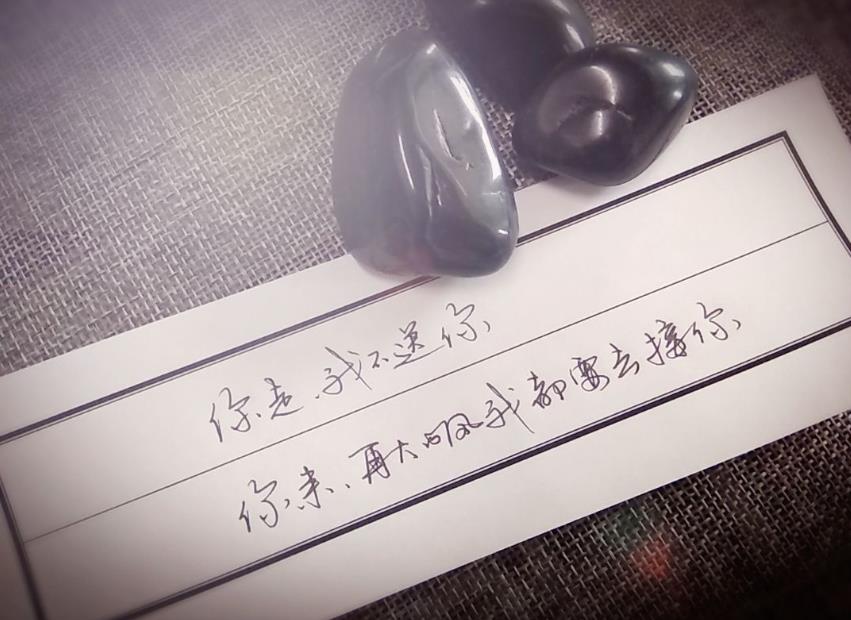 你走、我不送你
你来、再大的风我都要去接你